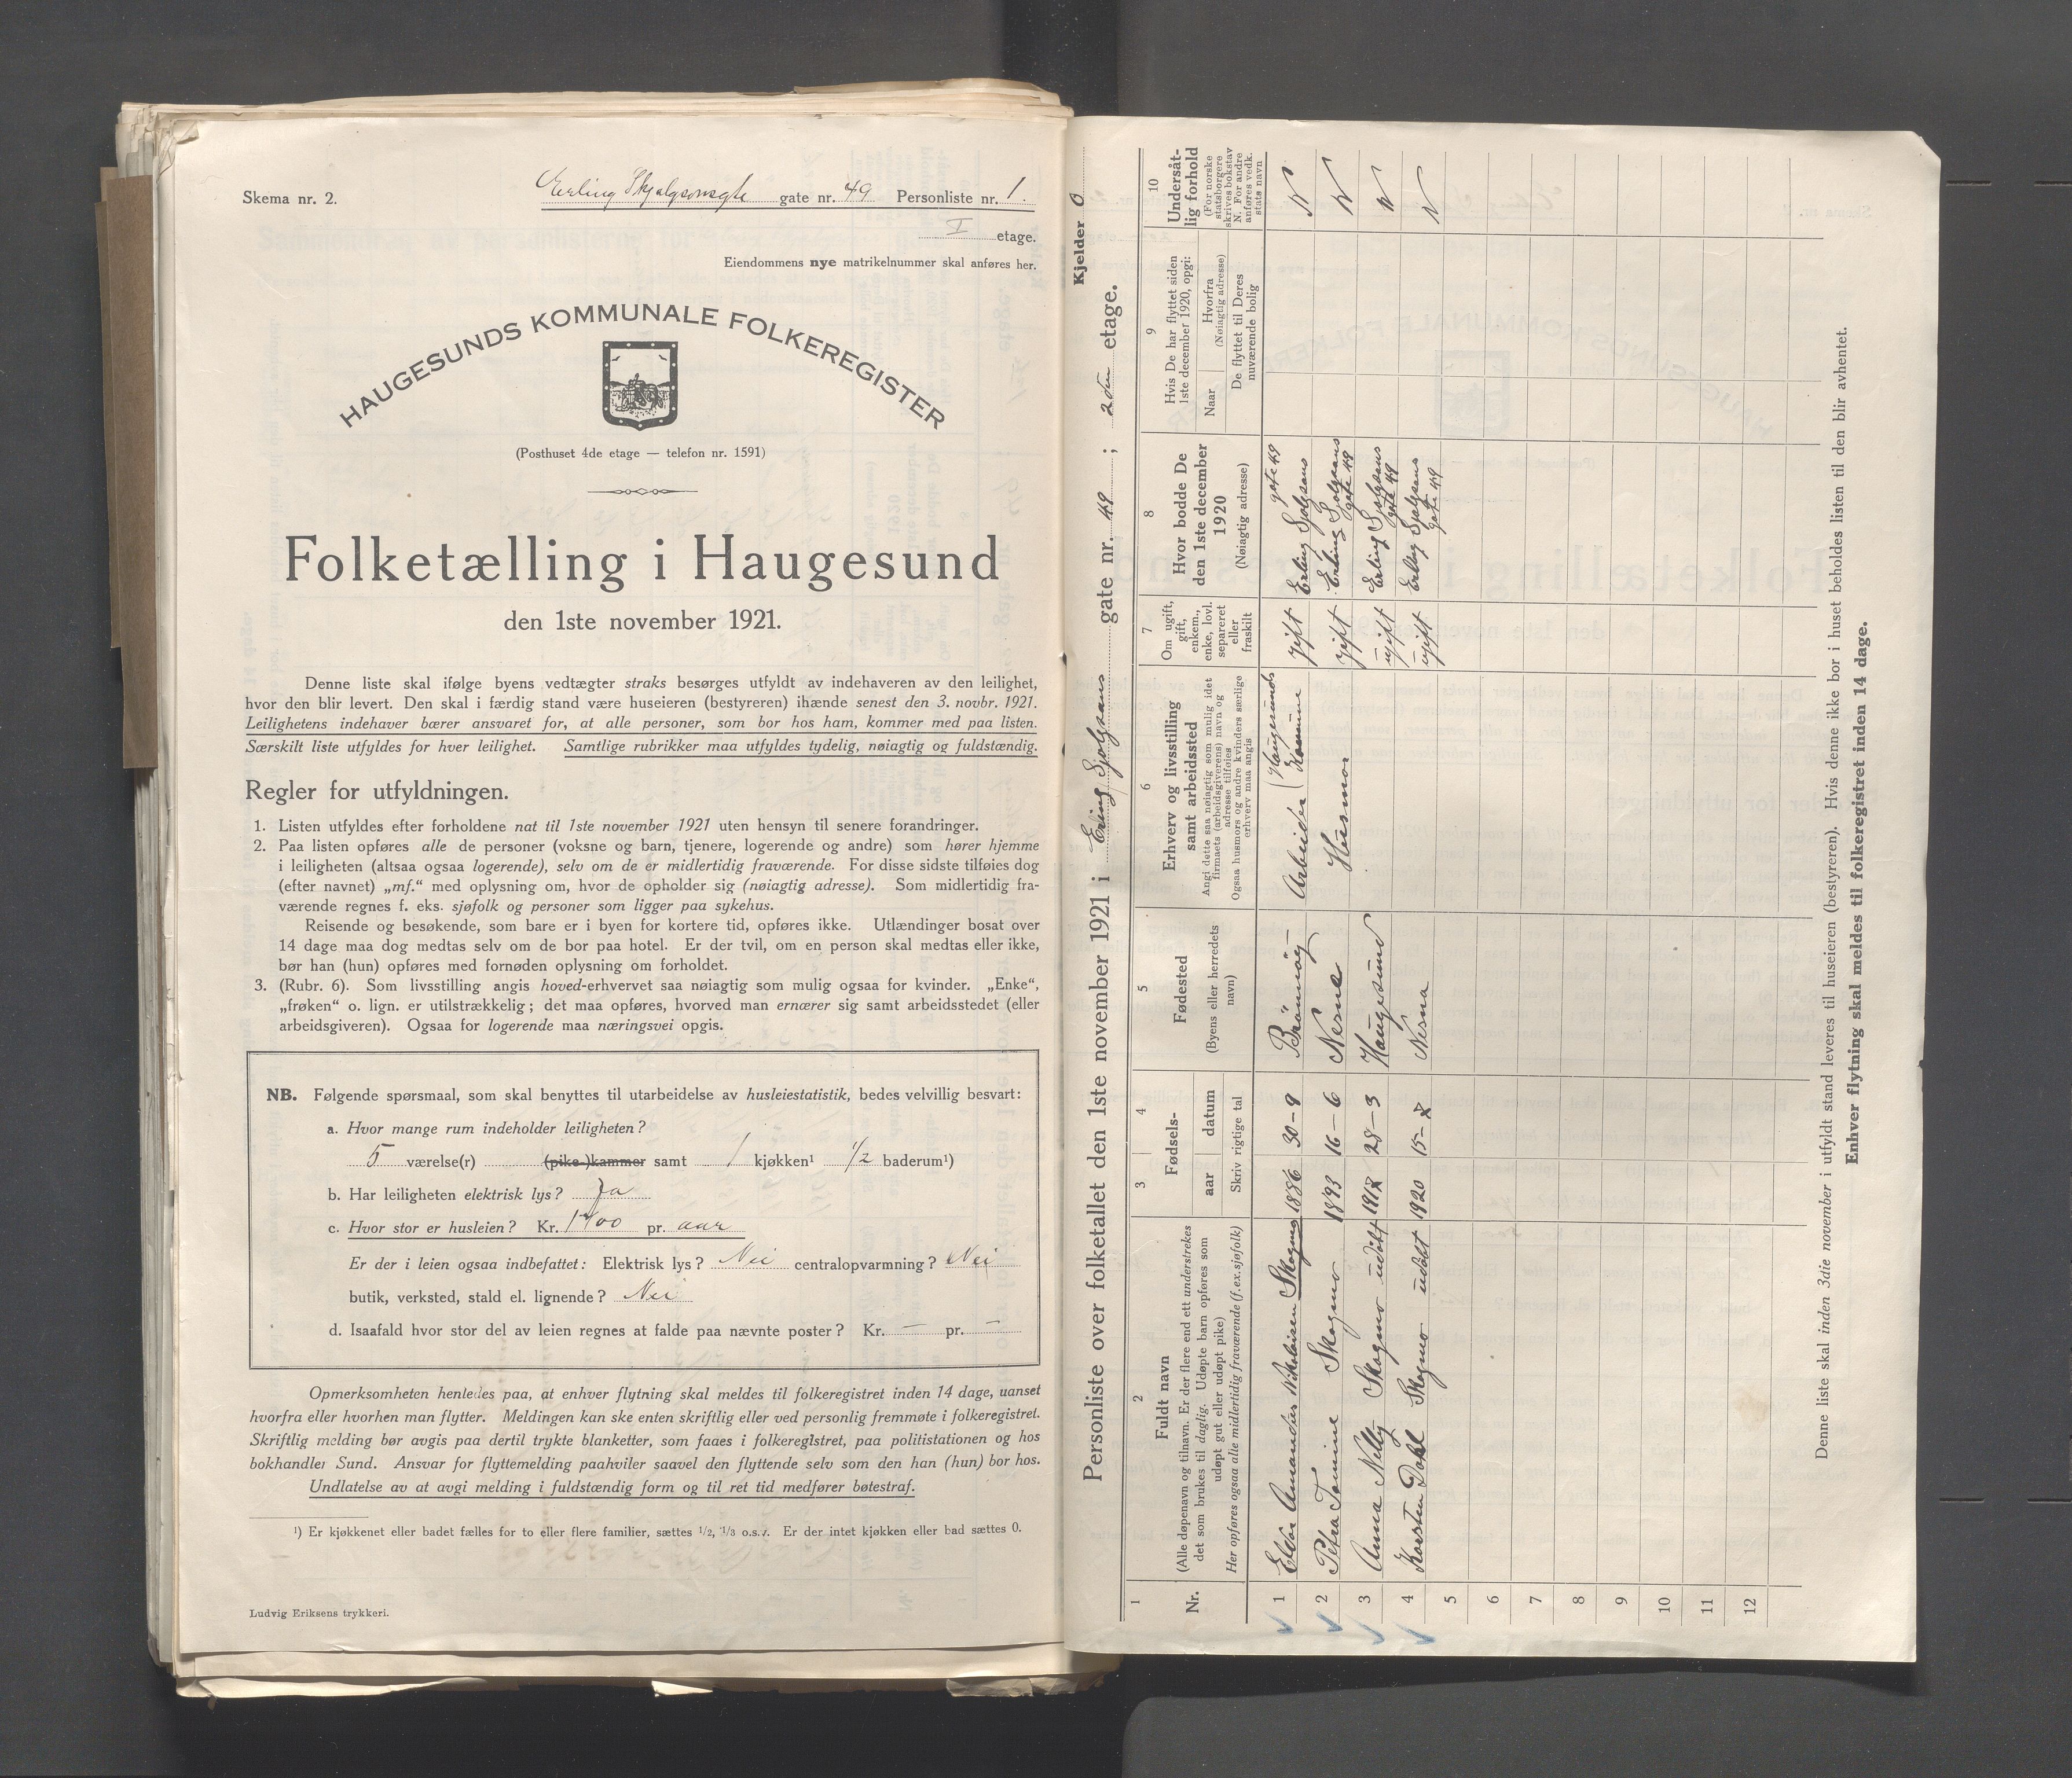 Skema nr. 2.
Erling Skjalgsonsgte gate nr. 49 Personliste nr. 1.
I etage.
Eiendommens nye matrikelnummer skal anføres her.
HAUGESUNDS KOMMUNALE FOLKEREGISTER
(Posthuset 4de etage — telefon nr. 1591)
Folketælling i Haugesund
den 1ste november 1921.
Denne liste skal ifølge byens vedtægter straks besørges utfyldt av indehaveren av den leilighet,
hvor den blir levert. Den skal i færdig stand være huseieren (bestyreren) ihænde senest den 3. novbr. 1921.
Leilighetens indehaver bærer ansvaret for, at alle personer, som bor hos ham, kommer med paa listen.
Særskilt liste utfyldes for hver leilighet. Samtlige rubrikker maa utfyldes tydelig, nøiagtig og fuldstændig.
Regler for utfyldningen.
1. Listen utfyldes efter forholdene nat til 1ste november 1921 uten hensyn til senere forandringer.
2. Paa listen opføres alle de personer (voksne og barn, tjenere, logerende og andre) som hører hjemme
i leiligheten (altsaa ogsaa logerende), selv om de er midlertidig fraværende. For disse sidste tilføies dog
(efter navnet) „mf.“ med oplysning om, hvor de opholder sig (nøiagtig adresse). Som midlertidig fra-
værende regnes f. eks. sjøfolk og personer som ligger paa sykehus.
Reisende og besøkende, som bare er i byen for kortere tid, opføres ikke. Utlændinger bosat over
14 dage maa dog medtas selv om de bor paa hotel. Er der tvil, om en person skal medtas eller ikke,
bør han (hun) opføres med fornøden oplysning om forholdet.
3. (Rubr. 6). Som livsstilling angis hoved-erhvervet saa nøiagtig som mulig ogsaa for kvinder. „Enke“,
„frøken“ o. lign. er utilstrækkelig; det maa opføres, hvorved man ernærer sig samt arbeidsstedet (eller
arbeidsgiveren). Ogsaa for logerende maa næringsvei opgis.
NB. Følgende spørsmaal, som skal benyttes til utarbeidelse av husleiestatistik, bedes velvillig besvart:
a. Hvor mange rum indeholder leiligheten?
5 værelse(r) (pike-)kammer samt 1 kjøkken¹ 1/2 baderum¹)
b. Har leiligheten elektrisk lys? Ja
c. Hvor stor er husleien? Kr. pr. aar
Er der i leien ogsaa indbefattet: Elektrisk lys? Nei centralopvarmning? Nei
butik, verksted, stald el. lignende? Nei
d. Isaafald hvor stor del av leien regnes at falde paa nævnte poster? Kr. — pr. —
Opmerksomheten henledes paa, at enhver flytning skal meldes til folkeregistret inden 14 dage, uanset
hvorfra eller hvorhen man flytter. Meldingen kan ske enten skriftlig eller ved personlig fremmøte i folkeregistret.
Skriftlig melding bør avgis paa dertil trykte blanketter, som faaes i folkeregistret, paa politistationen og hos
bokhandler Sund. Ansvar for flyttemelding paahviler saavel den flyttende selv som den han (hun) bor hos.
Undlatelse av at avgi melding i fuldstændig form og til ret tid medfører bøtestraf.
¹) Er kjøkkenet eller badet fælles for to eller flere familier, sættes 1/2, 1/3 o.s.v. Er der intet kjøkken eller bad sættes 0.
Ludvig Eriksens trykkeri.
Kjelder 0
Personliste over folketallet den 1ste november 1921 i Erling Sjolgsons gate nr. 49; 2den etage.
1 2 3 4 5 6 7 8 9 10
Nr.
Fuldt navn
(Alle døpenavn og tilnavn. Er der flere end ett understrekes
det som brukes til daglig. Udøpte barn opføres som
udøpt gut eller udøpt pike)
Her opføres ogsaa alle midlertidig fraværende (f. ex. sjøfolk)
Fødsels-
aar datum
Skriv rigtige tal
Fødested
(Byens eller herredets
navn)
Erhverv og livsstilling
samt arbeidssted
Angi dette saa nøiagtig som mulig idet
firmaets (arbeidsgiverens) navn og
adresse tilføies
Ogsaa husmors og andre kvinders særlige
erhverv maa angis
Om ugift,
gift,
enkem.,
enke, lovl.
separeret
eller
fraskilt
Hvor bodde De
den 1ste december
1920
(Nøiagtig adresse)
Hvis De har flyttet siden
1ste december 1920, opgi:
Naar Hvorfra
(Nøiagtig adresse)
De flyttet til Deres
nuværende bolig
Undersåt-
lig forhold
(For norske
statsborgere
skrives bokstav
N. For andre
anføres vedk.
stats navn
1 Eldor Amandus Nikolaisen Skogmo 1886 30-9 Brønnøy Arbeider (Haugesunds Komune gift Erling Sjolgsons gate 49 N
2 Petra Tomine Skogmo 1893 16-6 Nesne Husmor gift Erling Solgsons gate 49 N
3 Anna Nelly Skogmo udøbt 1917 28-3 Haugesund ugift Erling Sjolgsons gate 49 N
4 Korsten Dahl Skogmo udøbt 1920 15- Nesna ugift Erling Sjolgsons gate 49 N
5
6
7
8
9
10
11
12
Denne liste skal inden 3die november i utfyldt stand leveres til huseieren (bestyreren). Hvis denne ikke bor i huset beholdes listen til den blir avhentet.
Enhver flytning skal meldes til folkeregistret inden 14 dage.